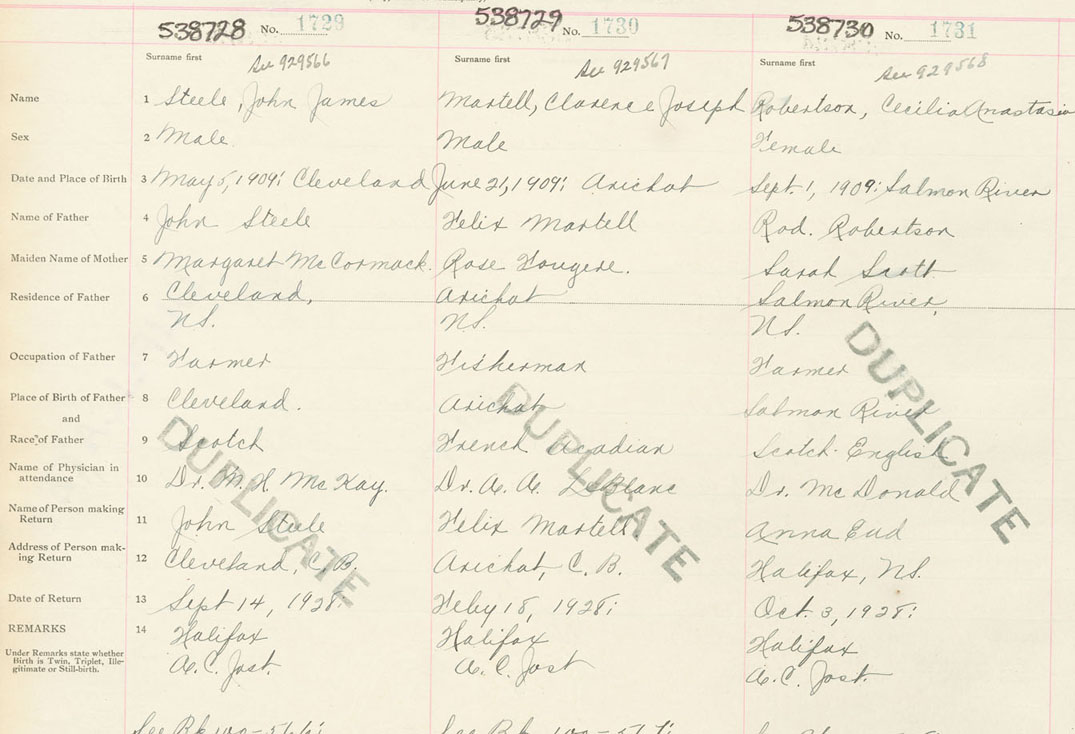 538728 No. 1729 538729 No. 1730 538730 No. 1731
Surname first Surname first Surname first
See 929566 See 929567 See 929568
Name 1 Steele, John James Martell, Clarence Joseph Robertson, Cecilia Anastasia
Sex 2 Male Male Female
Date and Place of Birth 3 May 5, 1909: Cleveland June 21, 1909: Arichat Sept. 1, 1909: Salmon River
Name of Father 4 John Steele Felix Martell Rod. Robertson
Maiden Name of Mother 5 Margaret McCormack. Rose Fougere. Sarah Scott
Residence of Father 6 Cleveland, Arichat Salmon River,
NS. NS. NS.
Occupation of Father 7 Farmer Fisherman Farmer
Place of Birth of Father 8 Cleveland. Arichat Salmon River
and
Race of Father 9 Scotch French Acadian Scotch English
Name of Physician in
attendance 10 Dr. McKay. Dr. A. A. LeBlanc Dr. McDonald
Name of Person making
Return 11 John Steele Felix Martell. Anna
Address of Person mak-
ing Return 12 Cleveland, C. B. Arichat, C. B. Halifax, NS.
Date of Return 13 Sept 14, 1928: Feby 18, 1928: Oct. 3, 1928:
REMARKS 14 Halifax Halifax Halifax
Under Remarks state whether
Birth is Twin, Triplet, Ille-
gitimate or Still-birth. A. C. Jost. A. C. Jost A. C. Jost.
DUPLICATE DUPLICATE DUPLICATE